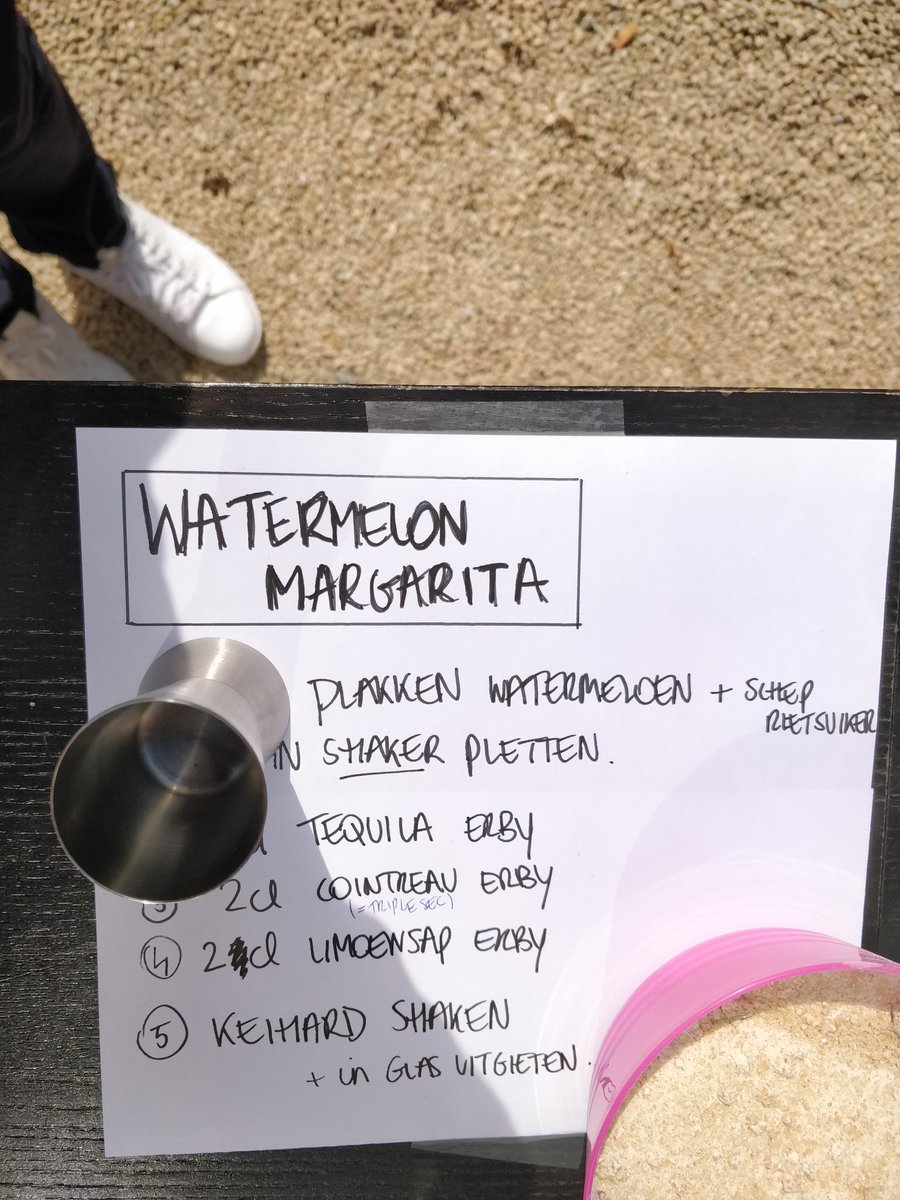 WATERMELON
MARGARITA
PLAKKEN WATERMELOEN + SCHEP
RIETSUIKER
IN SHAKER PLETTEN.
TEQUILA ERBY
3 2cl COINTREAU ERBY
(=TRIPLE SEC)
4 2cl LIMOENSAP ERBY
5 KEIHARD SHAKEN
+ in GLAS UITGIETEN.